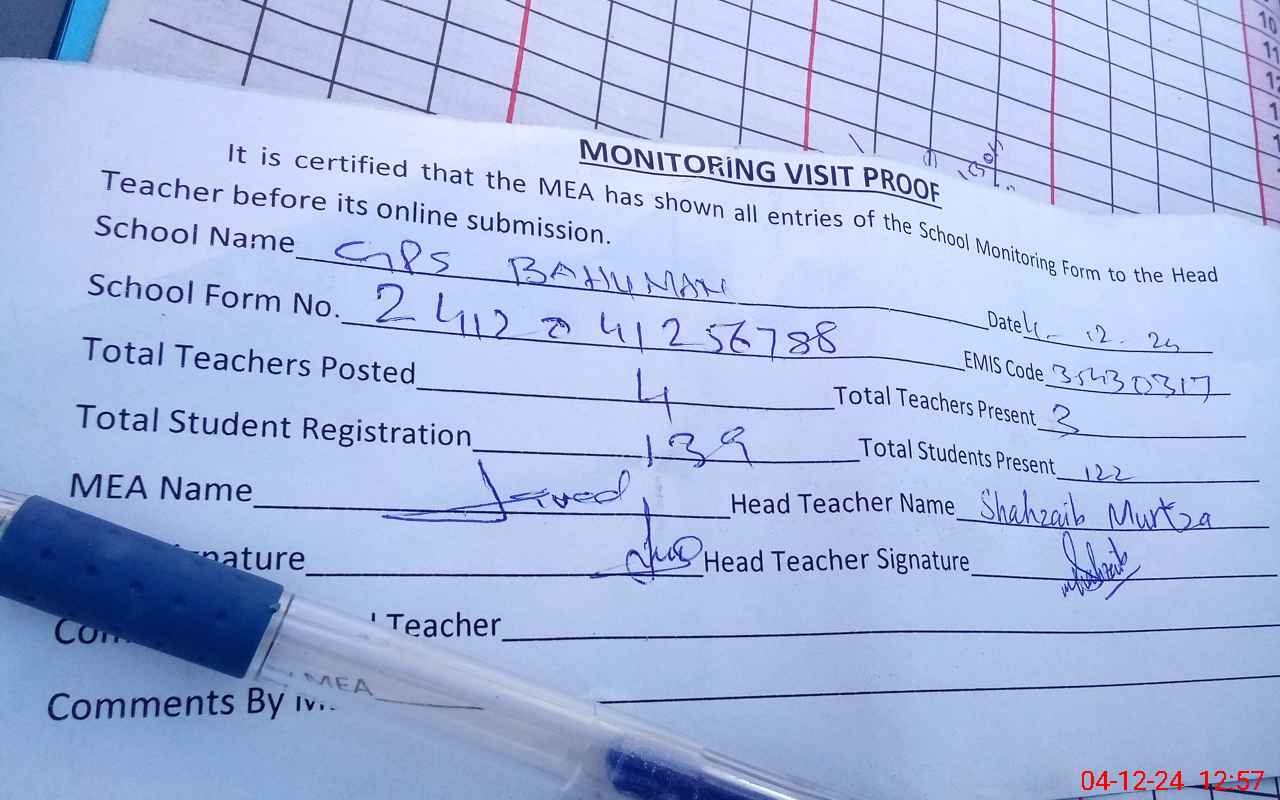 MONITORING VISIT PROOF
It is certified that the MEA has shown all entries of the School Monitoring Form to the Head
Teacher before its online submission.
School Name GPS BAHUMAN Date 4-12.24
School Form No. 2412041256788 EMIS Code 35430317
Total Teachers Posted 4 Total Teachers Present 3
Total Student Registration 139 Total Students Present 122
MEA Name Javed Head Teacher Name Shahzaib Murtza
nature Head Teacher Signature Shahzaib
Teacher
MEA
Comments By
04-12-24 12:57